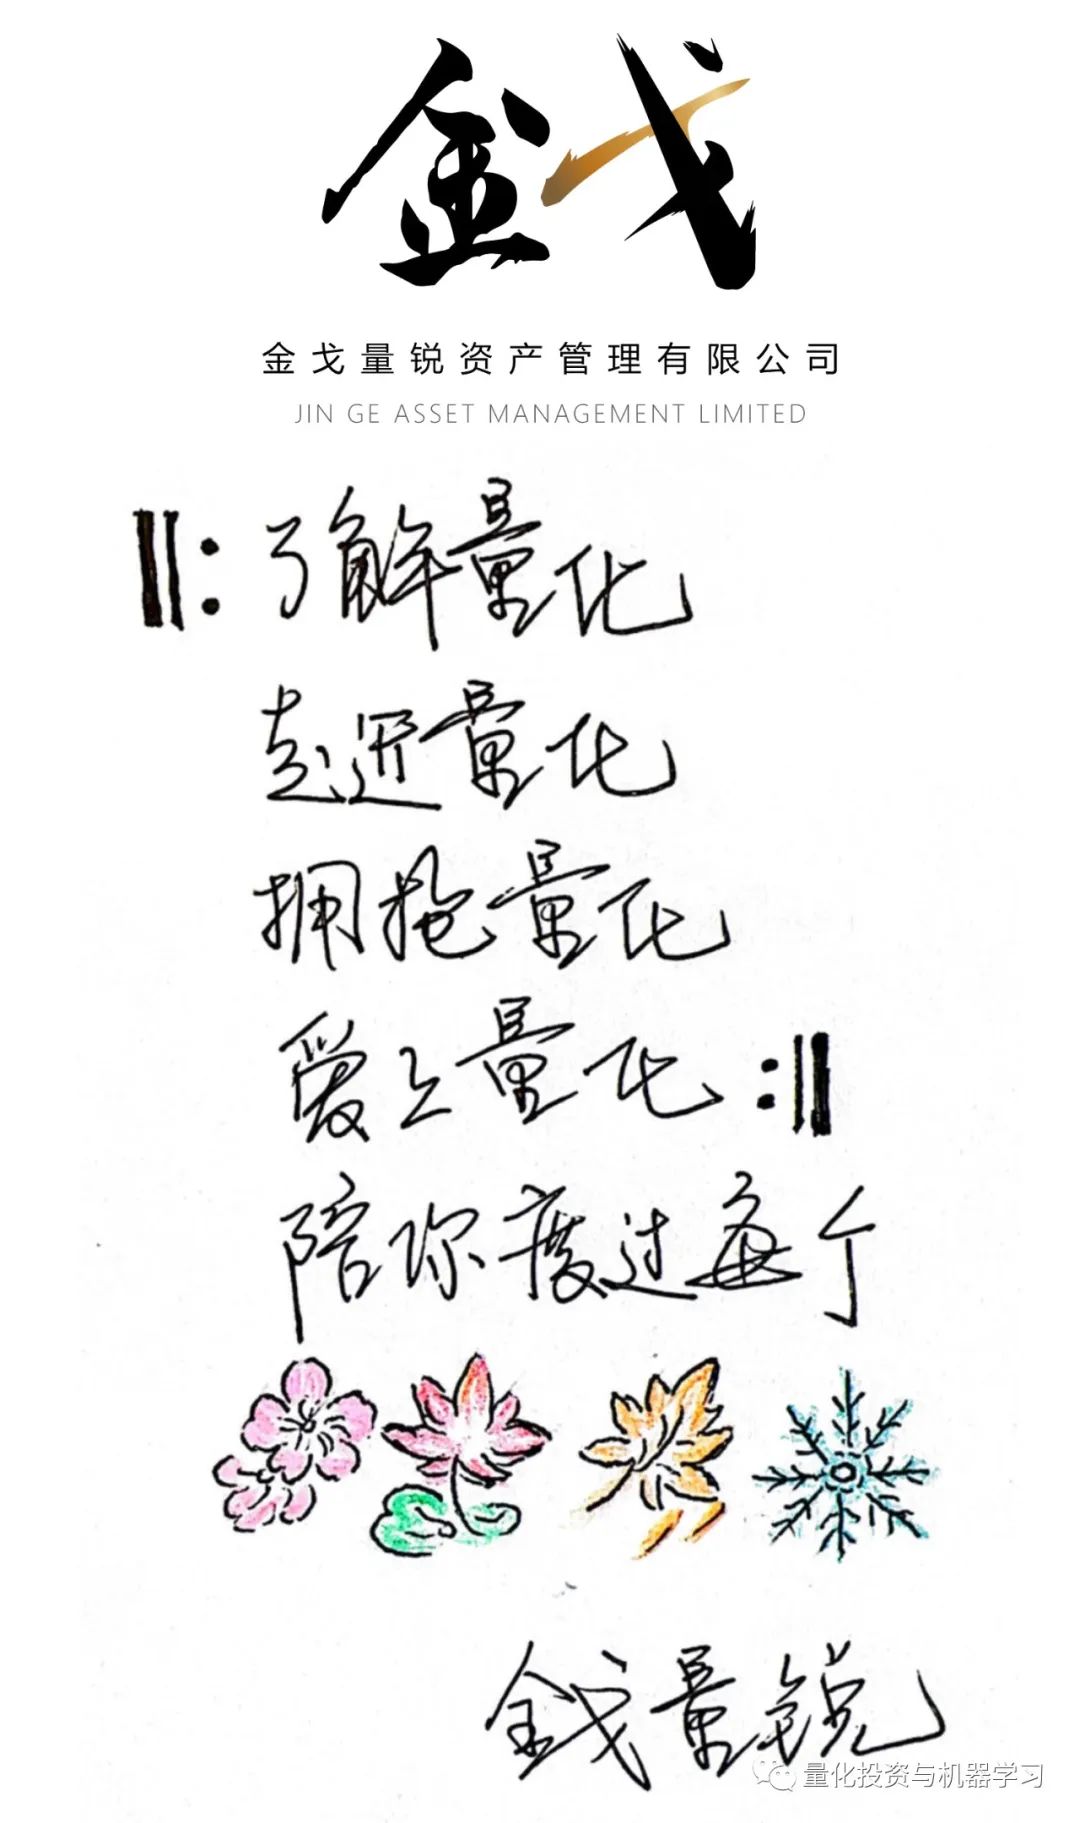 金戈
金戈量锐资产管理有限公司
JIN GE ASSET MANAGEMENT LIMITED
了解量化
走近量化
拥抱量化
爱上量化
陪你度过每个
金戈量锐
量化投资与机器学习